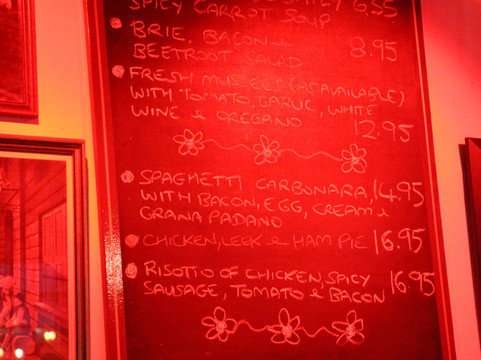 6.55
SPICY CARROT SOUP
BRIE, BACON &
BEETROOT SALAD 8.95
FRESH MUSSELS (AS AVAILABLE)
WITH TOMATO, GARLIC, WHITE
WINE & OREGANO
12.95
SPAGHETTI CARBONARA, 14.95
WITH BACON, EGG, CREAM &
GRANA PADANO
CHICKEN, LEEK & HAM PIE 16.95
RISOTTO OF CHICKEN, SPICY
SAUSAGE, TOMATO & BACON 16.95